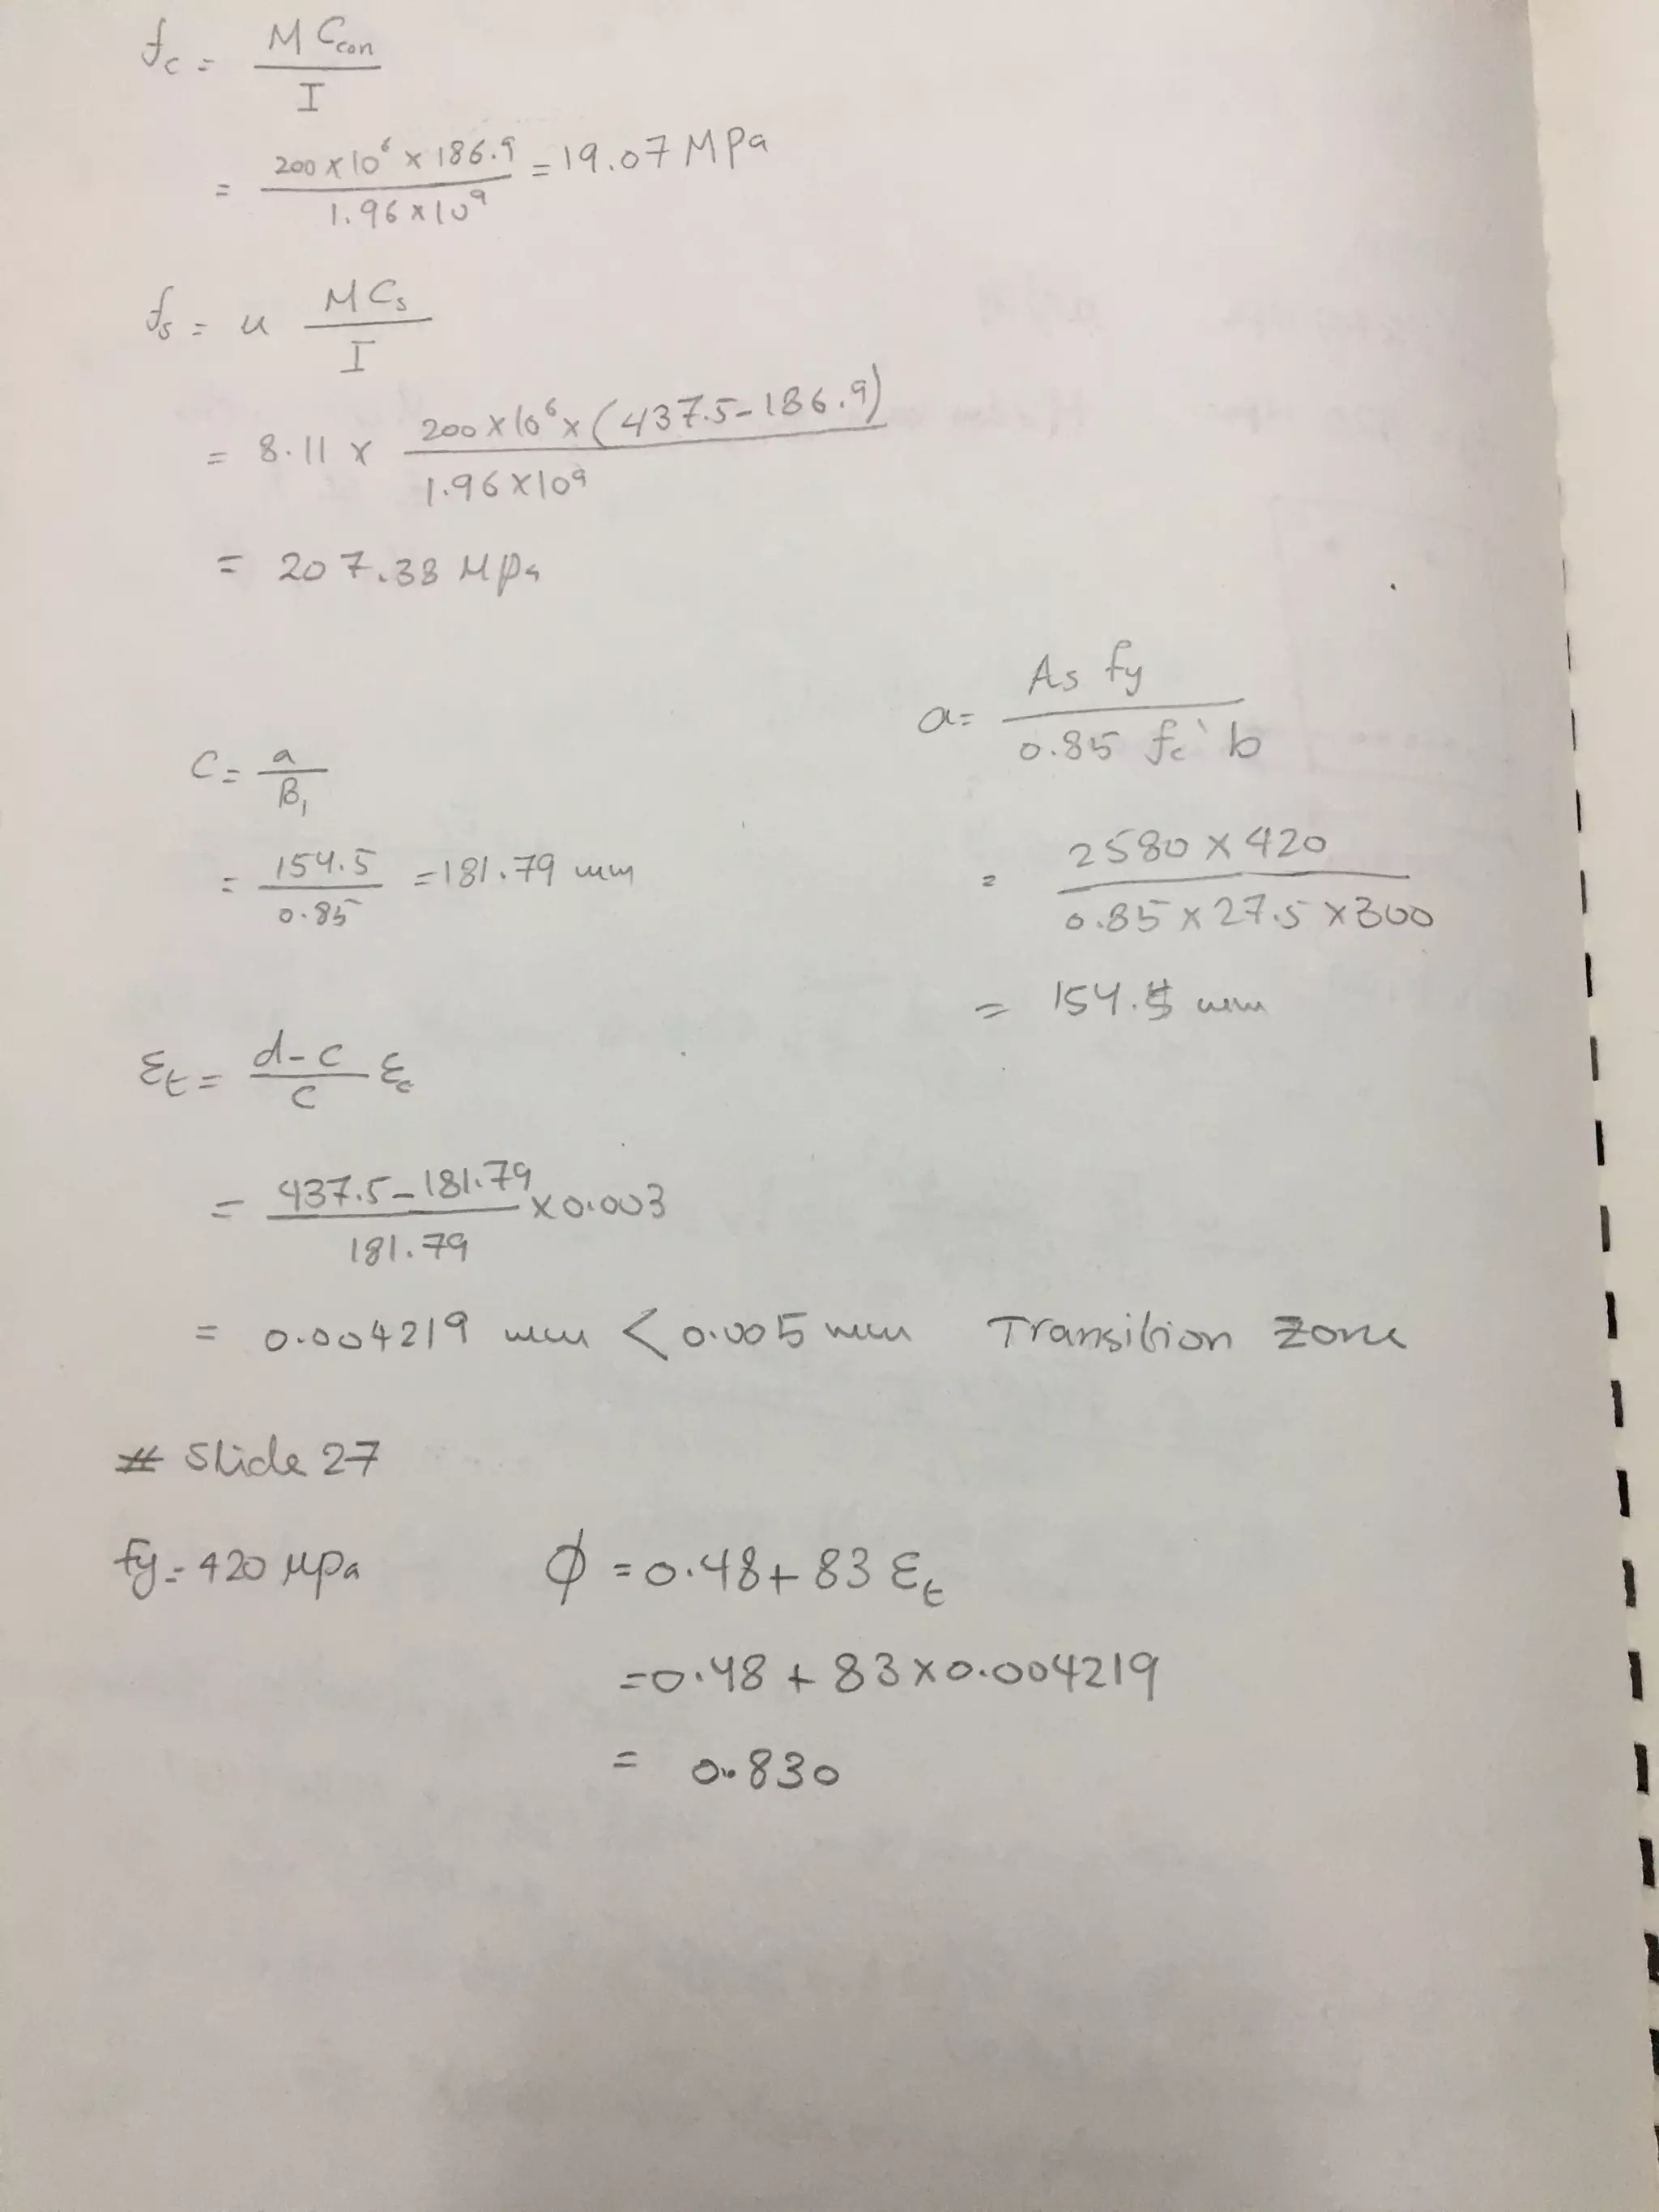 fc = M Ccon / I
= 200 x 10^6 x 186.9 / 1.96 x 10^9 = 19.07 MPa
fs = u M Cs / I
= 8.11 x 200 x 10^6 x (437.5 - 186.9) / 1.96 x 10^9
= 207.38 MPa
a = As fy / 0.85 fc' b
= 2580 x 420 / 0.85 x 27.5 x 300
= 154.5 mm
C = a / B1
= 154.5 / 0.85 = 181.79 mm
Ɛt = d - c / c Ɛc
= 437.5 - 181.79 / 181.79 x 0.003
= 0.004219 mm < 0.005 mm Transition Zone
# Slide 27
fy = 420 MPa
Ø = 0.48 + 83 Ɛt
= 0.48 + 83 x 0.004219
= 0.830